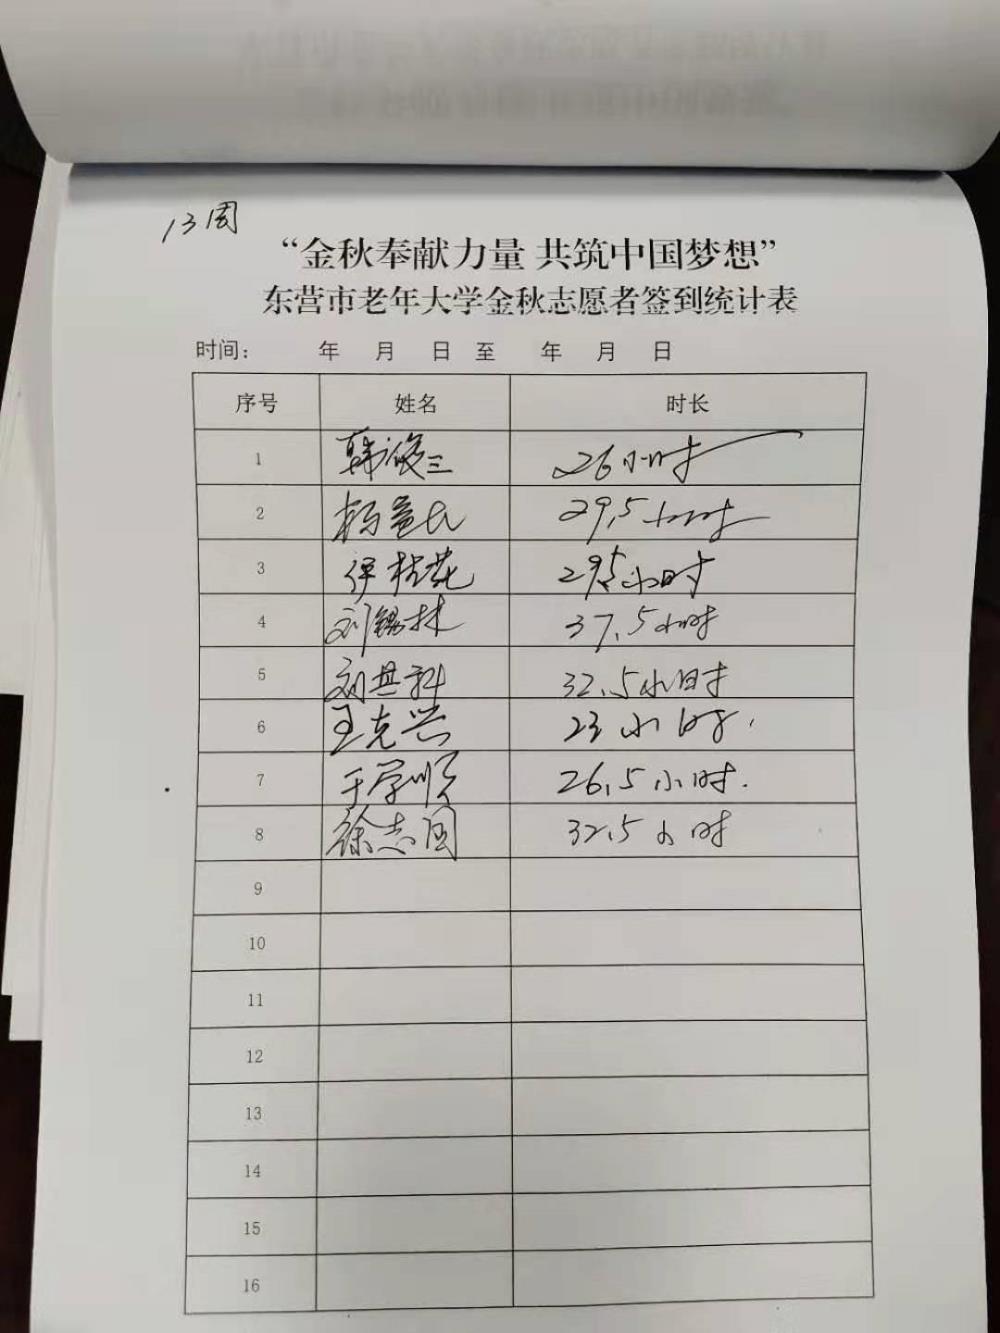 13周
“金秋奉献力量 共筑中国梦想”
东营市老年大学金秋志愿者签到统计表
时间: 年 月 日 至 年 月 日
序号 姓名 时长
1 韩俊三 26小时
2 杨益民 29.5小时
3 伊桂花 29.5小时
4 刘锡林 37.5小时
5 刘世科 32.5小时
6 王克兴 23小时.
7 于学顺 26.5小时.
8 徐志国 32.5小时
9
10
11
12
13
14
15
16